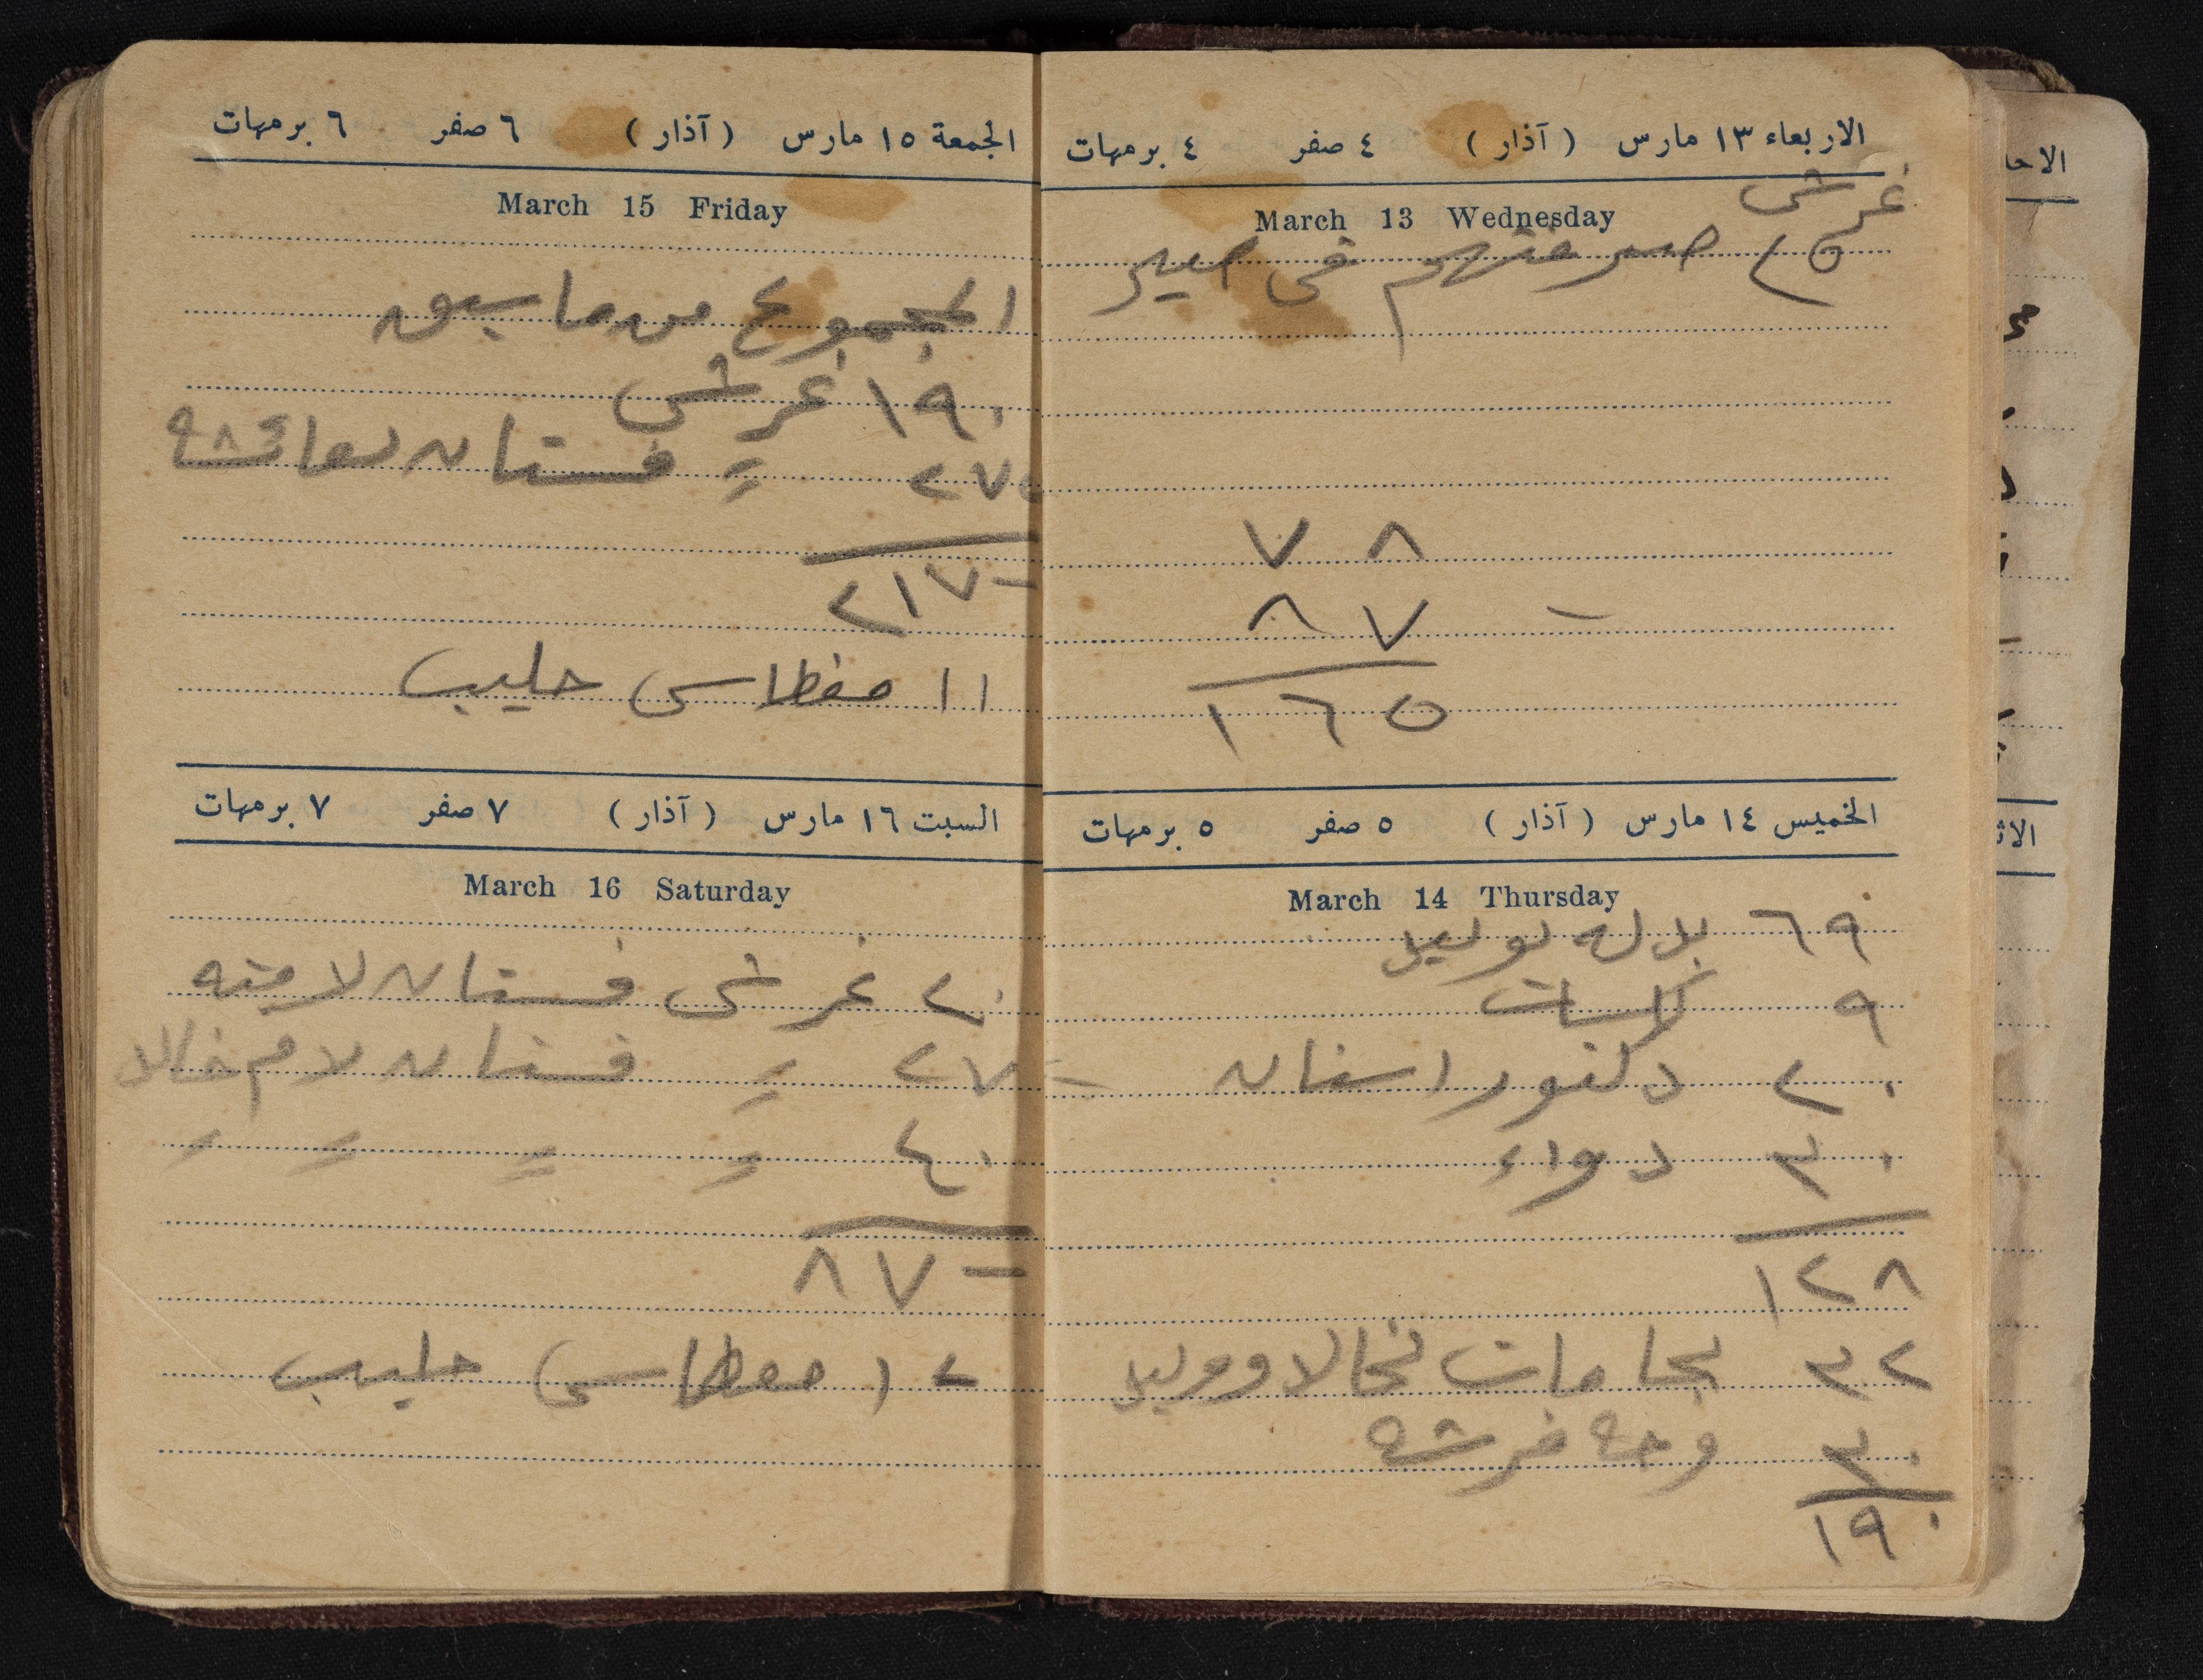 الاربعاء ١٣ مارس ( آذار ) ٤ صفر ٤ برمهات
March 13 Wednesday
غرش
٢٥ صرفتهم في
٧٨
٨٧ -
١٦٥
الخميس ١٤ مارس ( آذار ) ٥ صفر ٥ برمهات
March 14 Thursday
٦٩ بدله لوليد
٩ كاسات
٢٠ دكتور اسنان
٣٠ دواء
١٢٨
٣٢ بجامات لخالد ووليد
٣٠ وجه فرشه
١٩٠
الجمعة ١٥ مارس ( آذار ) ٦ صفر ٦ برمهات
March 15 Friday
المجموع من ما سبق
١٩٠ غرش
٢٧ فستان لعائشه
٢١٧ -
١١ مغطاس حليب
السبت ١٦ مارس ( آذار ) ٧ صفر ٧ برمهات
March 16 Saturday
٢٠ غرش فستان لامنه
٢٧ - = فستان لام خالد
٤٠ = = = =
٨٧ -
١٢ مغطاس حليب
الاحد